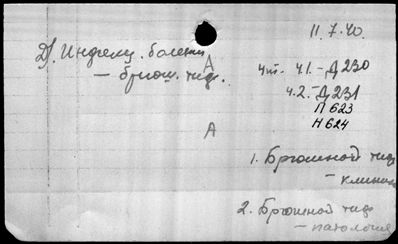 11.7.40.
Д). Инфекц. болезни
А
— брюш. тиф.
4т. 4.1. – Д 230
4.2. – Д 231
П 623
Н 624
А
1. Брюшной тиф
– клиника
2. Брюшной тиф
– патология